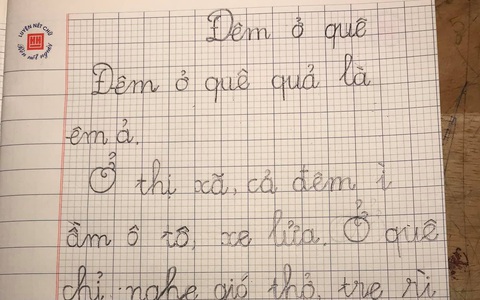 LUYỆN NÉT CHỮ
RÈN NẾT NGƯỜI
Đêm ở quê
Đêm ở quê quả là
êm ả.
Ở thị xã, cả đêm ì
ầm ô tô, xe lửa. Ở quê
chỉ nghe gió thở, tre rì